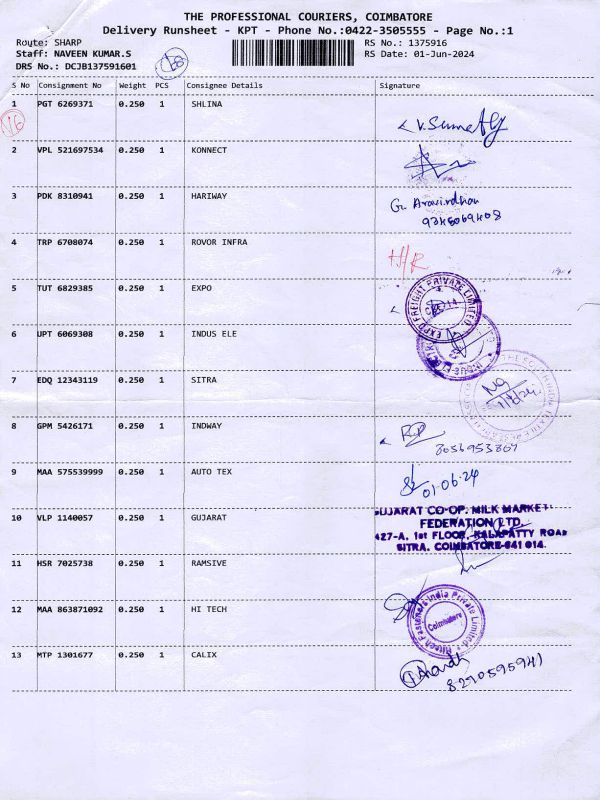 THE PROFESSIONAL COURIERS, COIMBATORE
Delivery Runsheet - KPT - Phone No.:0422-3505555 - Page No.:1
Route: SHARP
Staff: NAVEEN KUMAR.S
DRS No.: DCJB137591601
RS No.: 1375916
RS Date: 01-Jun-2024
S No Consignment No Weight PCS Consignee Details Signature
1 PGT 6269371 0.250 1 SHLINA
16
2 VPL 521697534 0.250 1 KONNECT
3 PDK 8310941 0.250 1 HARIWAY G. Aravindhan
4 TRP 6708074 0.250 1 ROVOR INFRA H/R
5 TUT 6829385 0.250 1 EXPO EXPO FREIGHT PRIVATE LIMITED
6 UPT 6069308 0.250 1 INDUS ELE
7 EDQ 12343119 0.250 1 SITRA
8 GPM 5426171 0.250 1 INDWAY
9 MAA 575539999 0.250 1 AUTO TEX 01-06-24
10 VLP 1140057 0.250 1 GUJARAT
GUJARAT CO-OP. MILK MARKET
FEDERATION LTD.
427-A, 1st FLOOR, KALAPATTY ROAD
SITRA, COIMBATORE-641 014.
11 HSR 7025738 0.250 1 RAMSIVE
12 MAA 863871092 0.250 1 HI TECH Hitech Fasteners India Private Limited Coimbatore
13 MTP 1301677 0.250 1 CALIX
8270595941